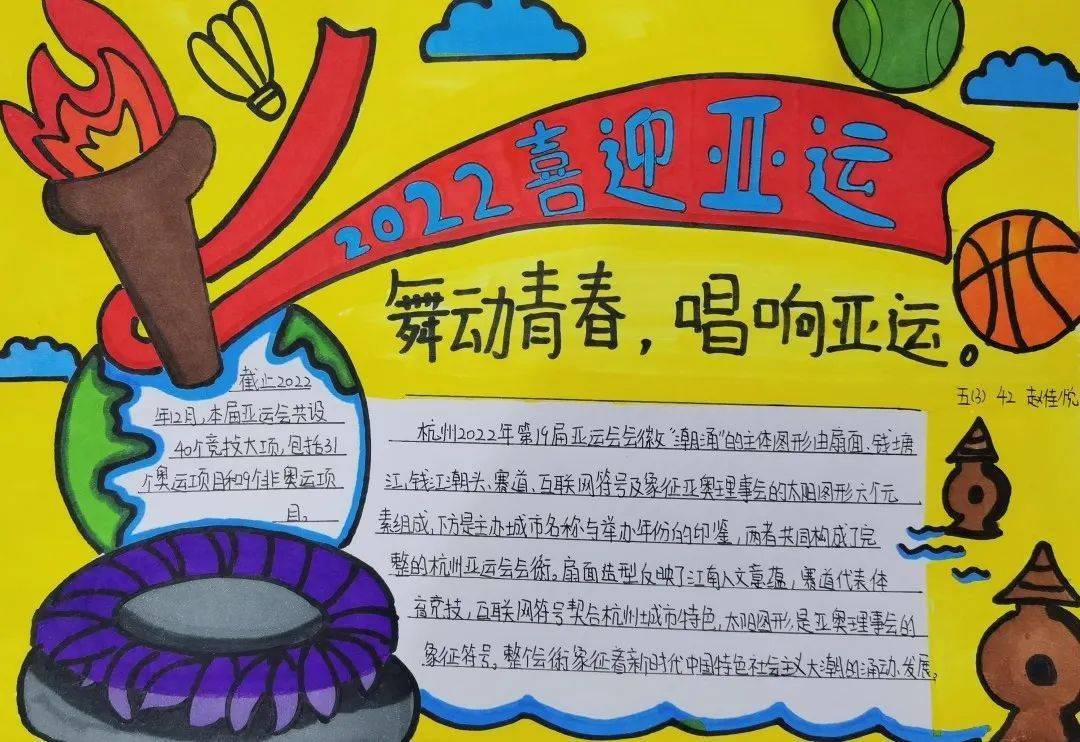 2022喜迎亚运
舞动青春，唱响亚运。
五(3) 42 赵佳悦
截止2022
年12月，本届亚运会共设
40个竞技大项，包括31
个奥运项目和9个非奥运项
目。
杭州2022年第19届亚运会会徽"潮涌"的主体图形由扇面、钱塘
江、钱江潮头、赛道、互联网符号及象征亚奥理事会的太阳图形六个元
素组成，下方是主办城市名称与举办年份的印鉴，两者共同构成了完
整的杭州亚运会会术。扇面造型反映了江南人文意蕴，赛道代表体
育竞技，互联网符号契合杭州城市特色，太阳图形是亚奥理事会的
象征符号。整个会术象征着新时代中国特色社会主义大潮的涌动、发展。